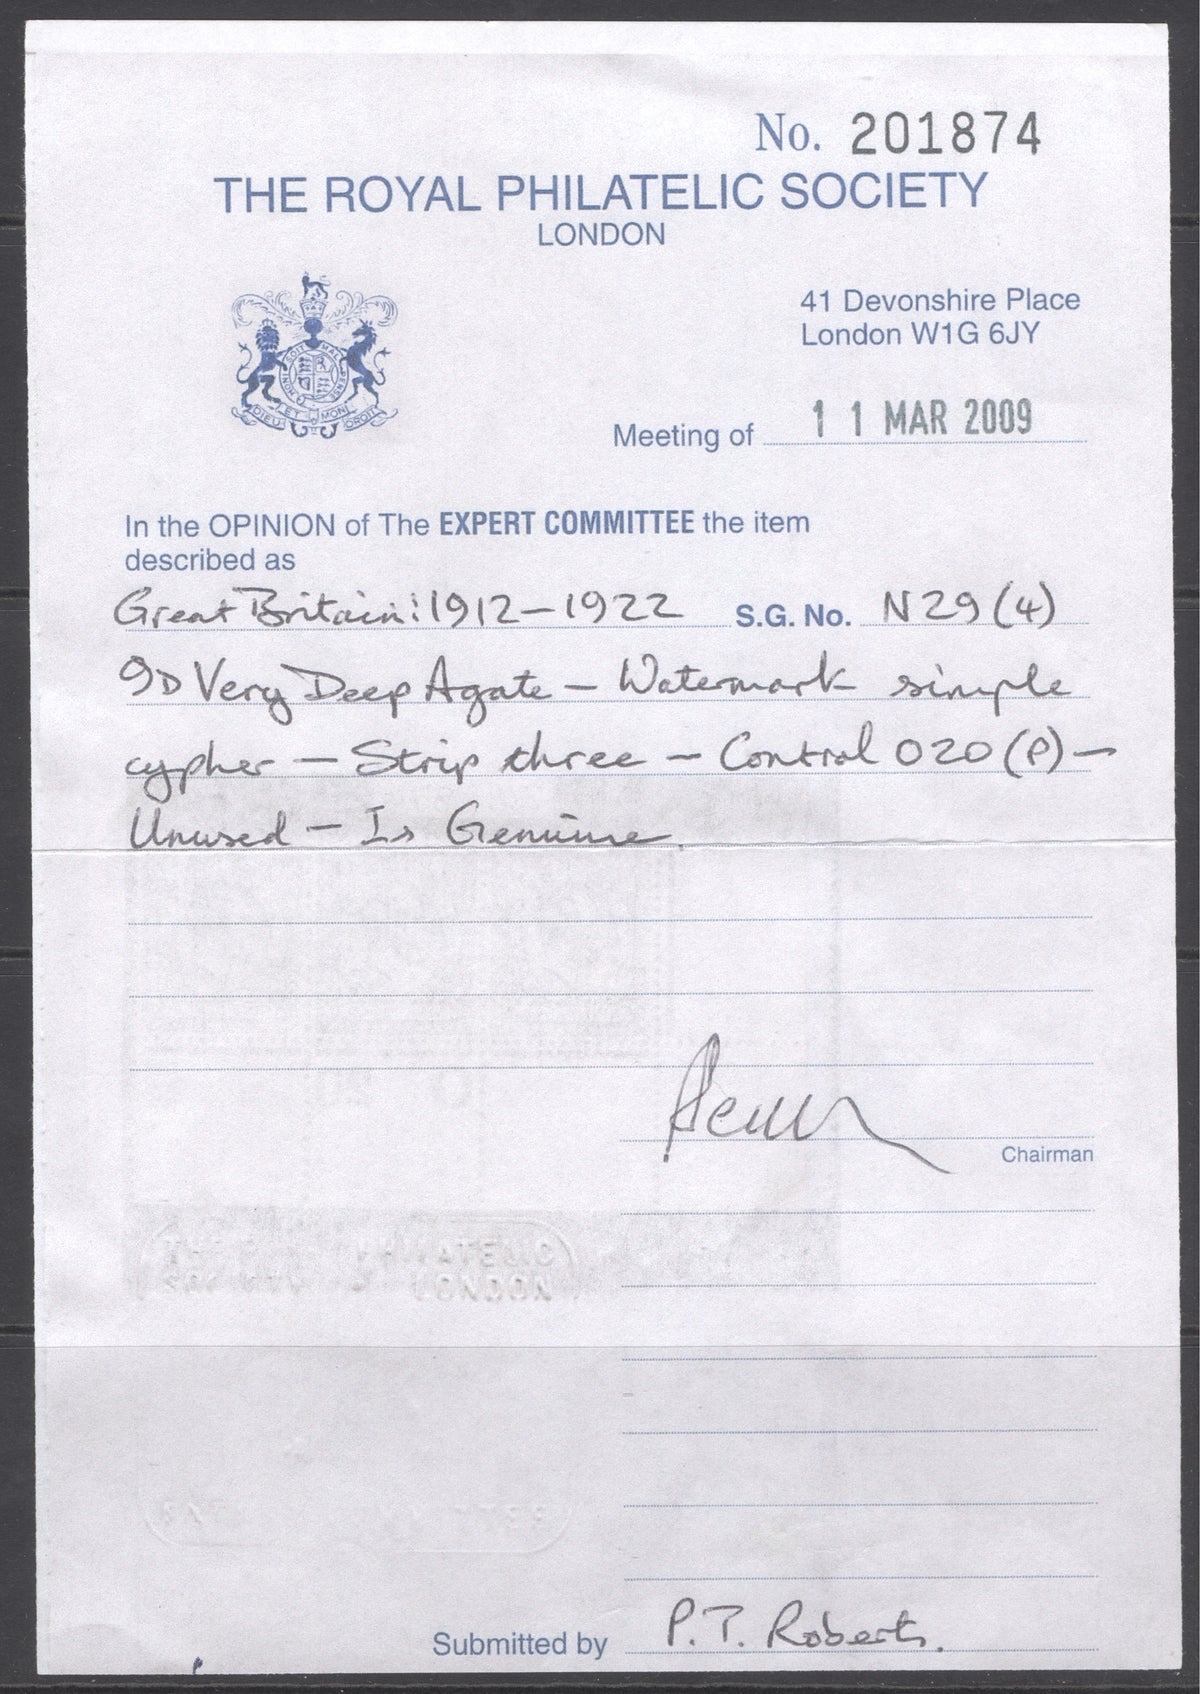 No. 201874
THE ROYAL PHILATELIC SOCIETY
LONDON
41 Devonshire Place
London W1G 6JY
SOIT MAL PENSE HONI
DIEU ET MON DROIT
Meeting of 11 MAR 2009
In the OPINION of The EXPERT COMMITTEE the item
described as
Great Britain: 1912-1922 S.G. No. N29(4)
9D Very Deep Agate - Watermark simple
cypher - Strip three - Control O20 (P) -
Unused - Is Genuine.
Chairman
Submitted by P.T. Roberts.